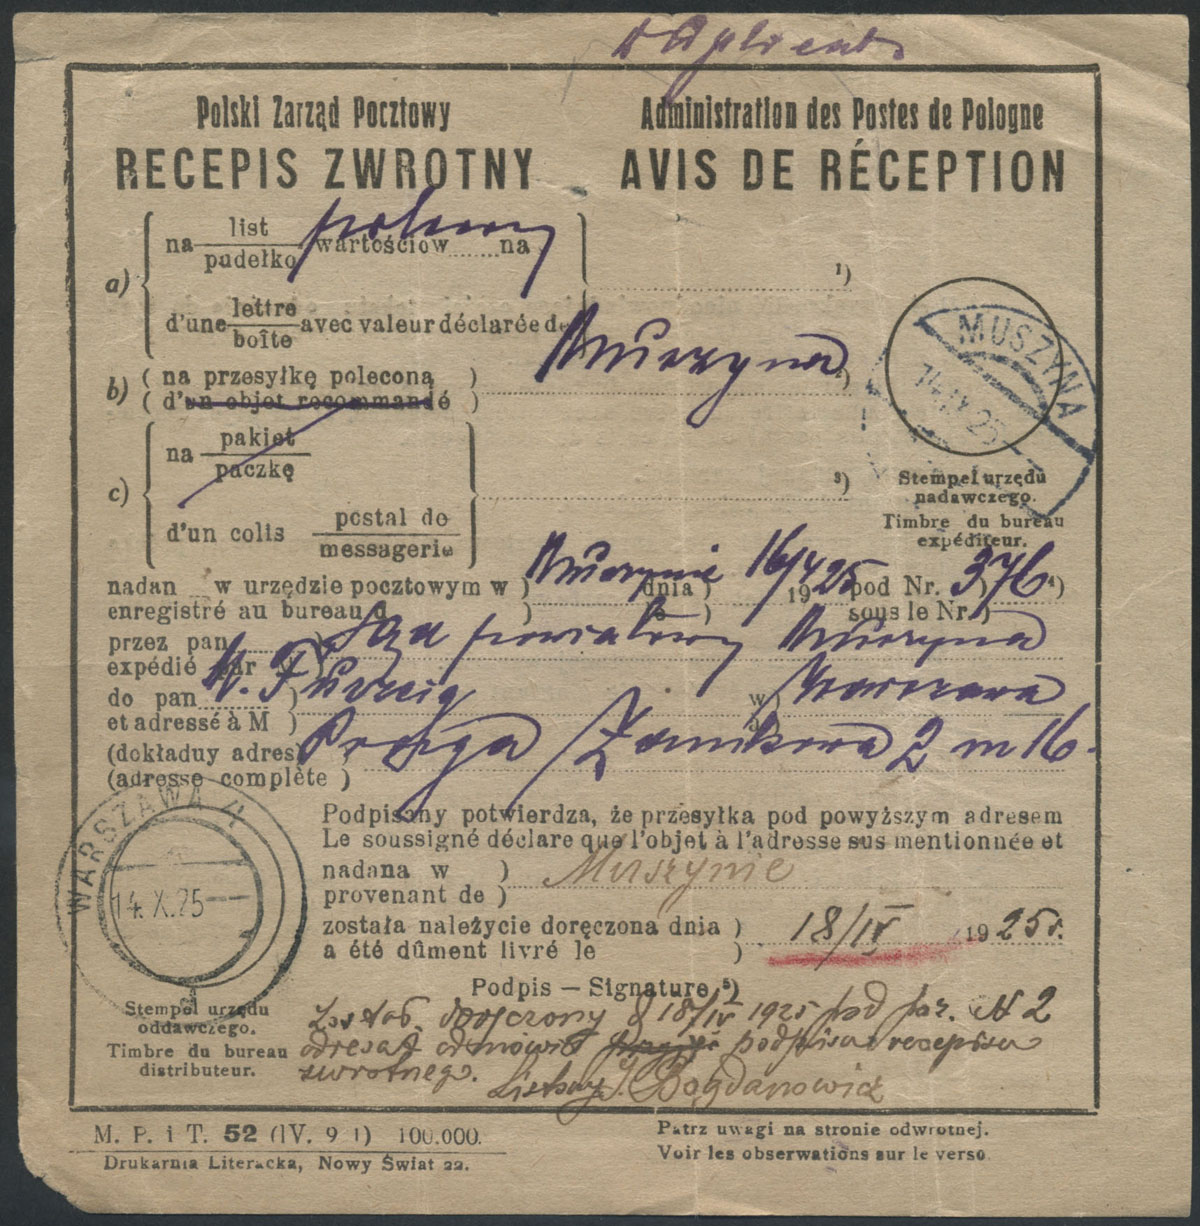 Duplicat
Polski Zarząd Pocztowy
RECEPIS ZWROTNY
Administration des Postes de Pologne
AVIS DE RÉCEPTION
a)
na list pudełko wartościow na
polecony
1)
d'une lettre boîte avec valeur déclarée de
b) ( na przesyłkę poleconą )
Muszyna
( d'un objet recommandé )
c)
na pakiet paczkę
3)
d'un colis postal de messagerie
MUSZYNA
14.IX.25
Stempel urzędu
nadawczego.
Timbre du bureau
expéditeur.
nadan w urzędzie pocztowym w ) Muszynie dnia ) 16/4 1925 pod Nr. ) 376 4)
enregistré au bureau d ) le ) sous le Nr. )
przez pan ) Sąd powiatowy Muszyna
expédié par M )
do pan ) w ) Warszawa
et adressé à M ) à )
(dokładny adres) Praga Zamkowa 2 m 16.
(adresse complète )
WARSZAWA 4
14.X.25
Stempel urzędu
oddawczego.
Timbre du bureau
distributeur.
Podpisany potwierdza, że przesyłka pod powyższym adresem
Le soussigné déclare que l'objet à l'adresse sus mentionnée et
nadana w ) Muszynie
provenant de )
została należycie doręczona dnia ) 18/IV 1925r.
a été dûment livré le )
Podpis — Signature 5)
Został doręczony d 18/IV 1925 pod poz. N 2
adresat odmówił podpisu recepisu
zwrotnego. Listowy J. Bogdanowicz
M. P. i T. 52 (IV. 921) 100.000.
Drukarnia Literacka, Nowy Świat 22.
Patrz uwagi na stronie odwrotnej.
Voir les observations sur le verso.